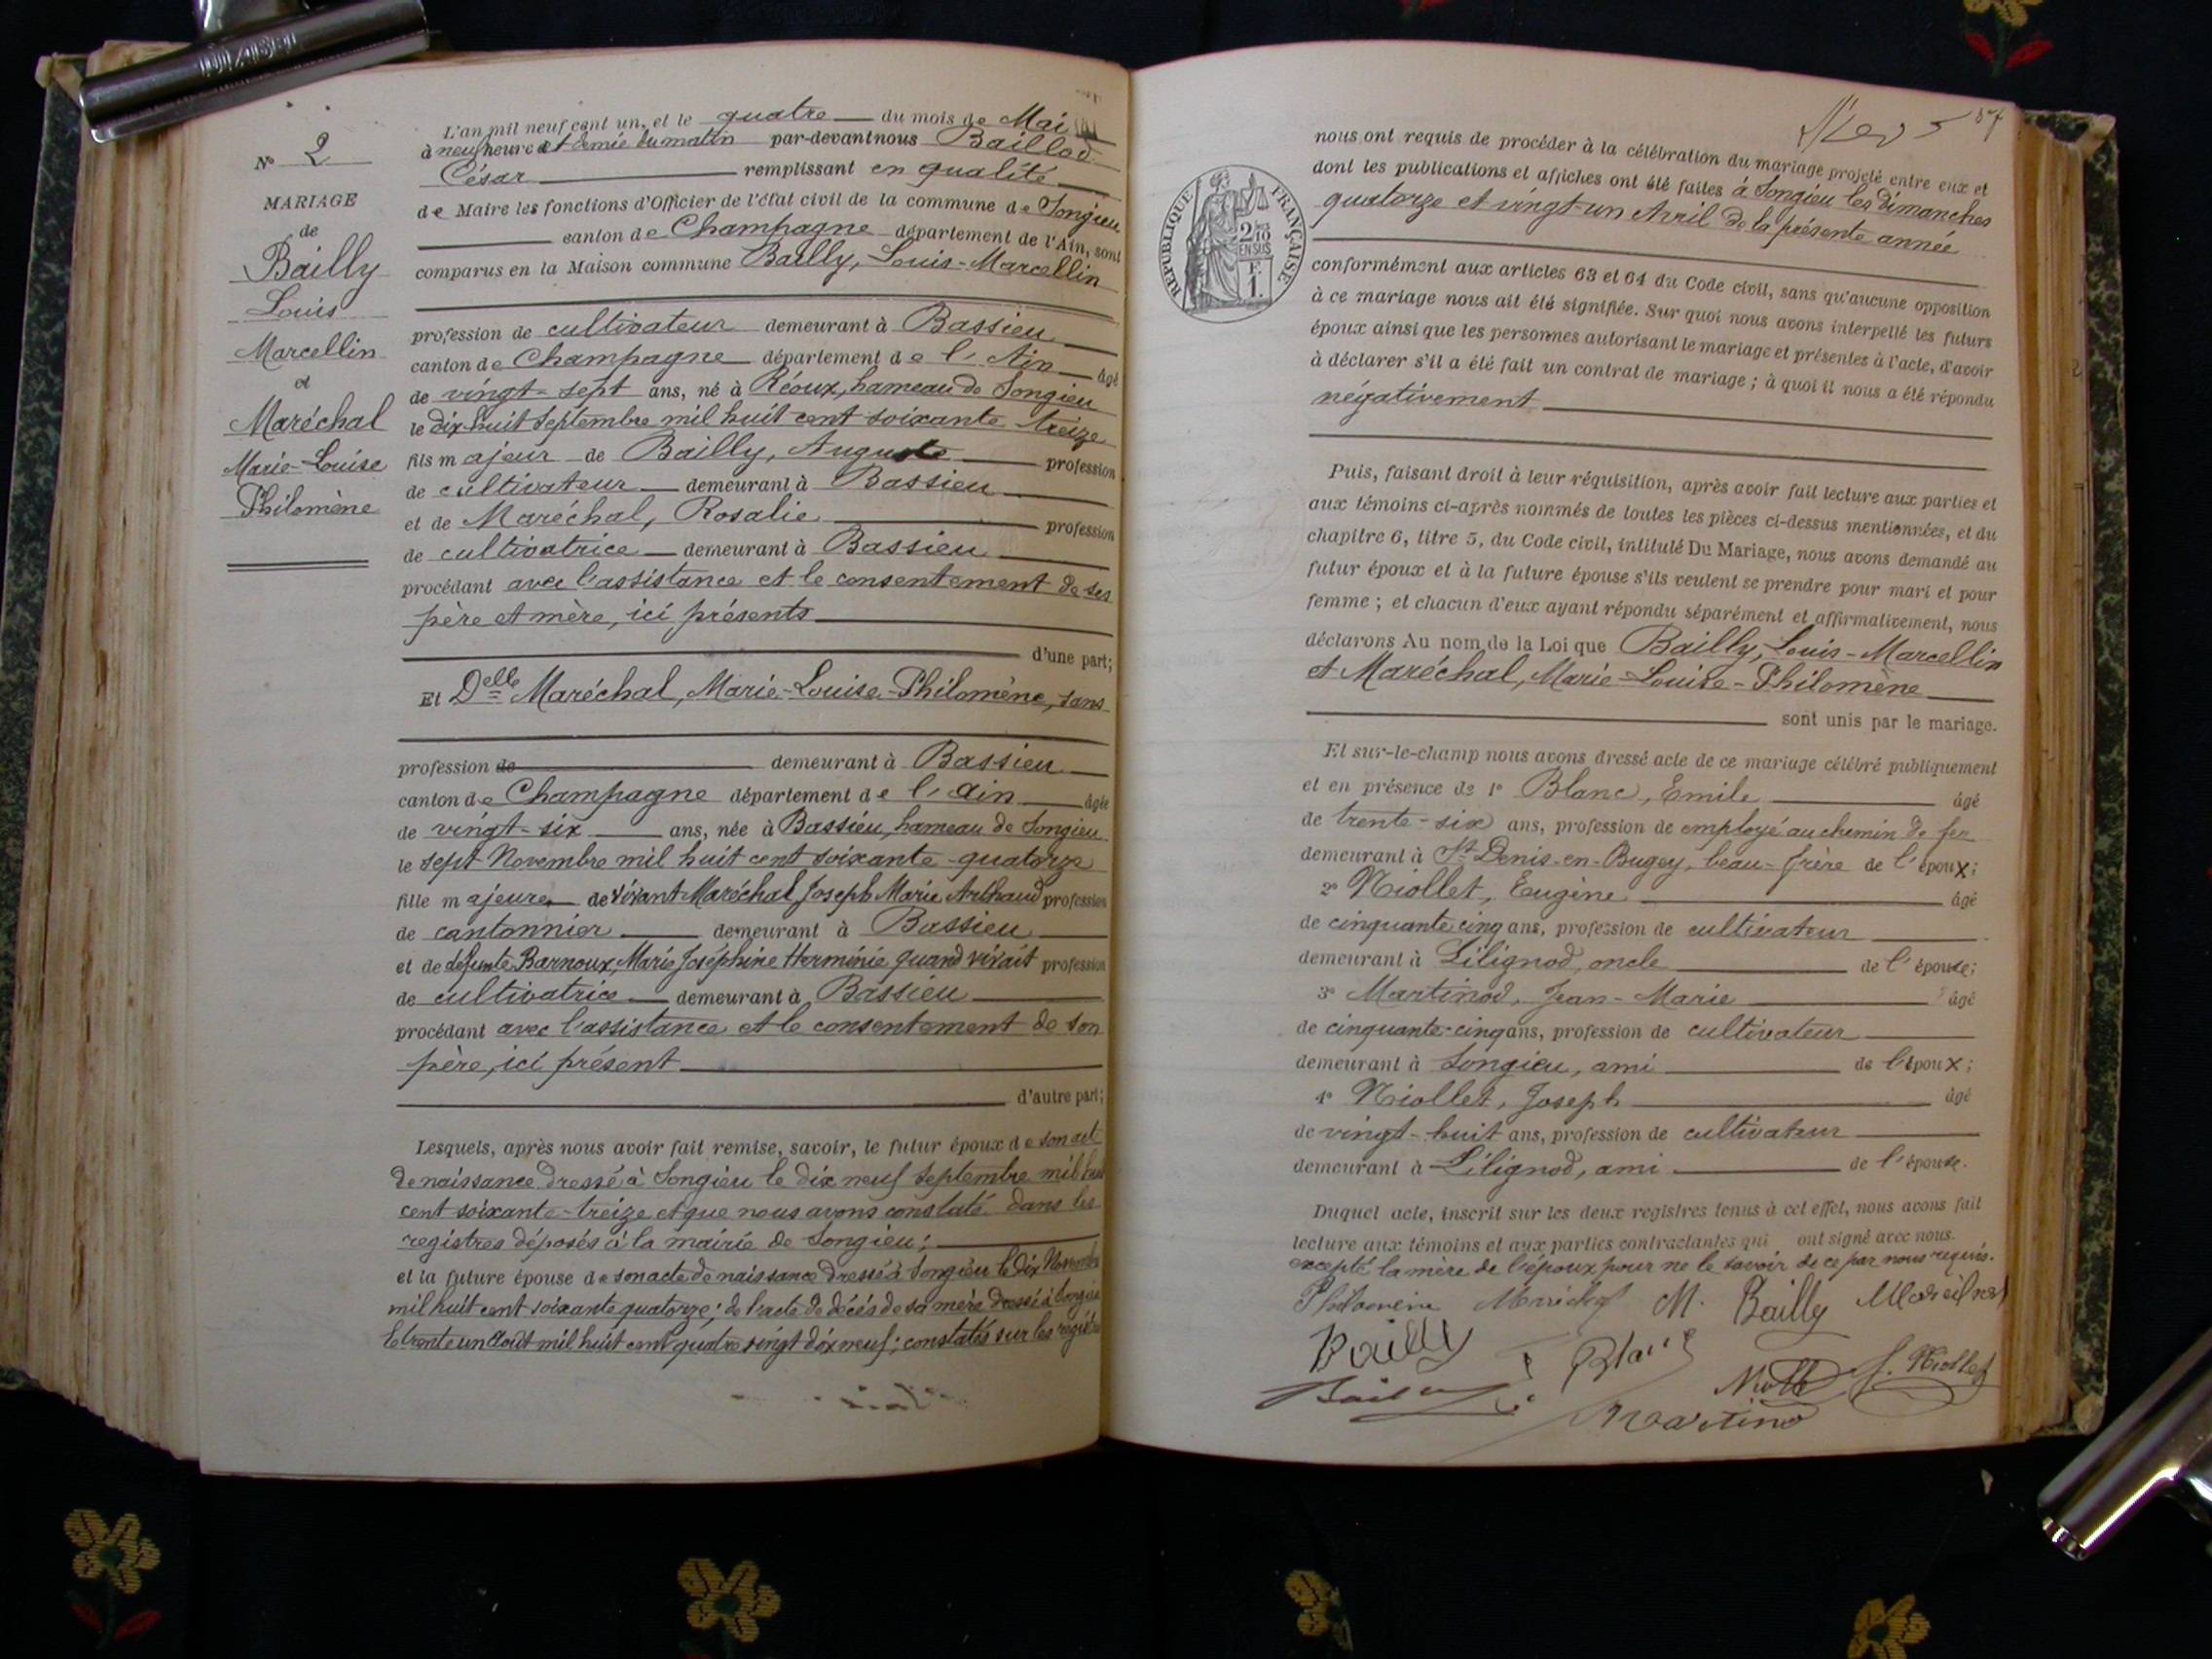 N° 2
MARIAGE
de
Bailly
Louis
Marcellin
et
Maréchal
Marie-Louise
Philomène
L'an mil neuf cent un, et le quatre du mois de Mai
à neuf heure et demie du matin par-devant nous Baillod
César remplissant en qualité
de Maire les fonctions d'Officier de l'état civil de la commune de Songieu
canton de Champagne département de l'Ain, sont
comparus en la Maison commune Bailly, Louis-Marcellin
profession de cultivateur demeurant à Bassieu
canton de Champagne département de l'Ain âgé
de vingt-sept ans, né à Réoux, hameau de Songieu
le dix-huit Septembre mil huit cent soixante-treize
fils majeur de Bailly, Auguste profession
de cultivateur demeurant à Bassieu
et de Maréchal, Rosalie profession
de cultivatrice demeurant à Bassieu
procédant avec l'assistance et le consentement de ses
père et mère, ici présents
d'une part;
Et Delle Maréchal, Marie-Louise-Philomène, sans
profession de demeurant à Bassieu
canton de Champagne département de l'Ain âgée
de vingt-six ans, née à Bassieu, hameau de Songieu
le sept Novembre mil huit cent soixante-quatorze
fille majeure de vivant Maréchal Joseph Marie Arthaud profession
de cantonnier demeurant à Bassieu
et de défunte Barnoux, Marie Joséphine Herminie quand vivait profession
de cultivatrice demeurant à Bassieu
procédant avec l'assistance et le consentement de son
père, ici présent
d'autre part;
Lesquels, après nous avoir fait remise, savoir, le futur époux de son act
de naissance dressé à Songieu le dix neuf Septembre mil huit
cent soixante-treize et que nous avons constaté dans les
registres déposés à la mairie de Songieu;
et la future épouse de son acte de naissance dressé à Songieu le dix Novembre
mil huit cent soixante quatorze; de l'acte de décès de sa mère dressé à Songieu
le trente un Août mil huit cent quatre vingt dix neuf; constatés sur les registres
57
RÉPUBLIQUE FRANÇAISE
2/10 EN SUS
F.
1.
nous ont requis de procéder à la célébration du mariage projeté entre eux et
dont les publications et affiches ont été faites à Songieu les dimanches
quatorze et vingt-un Avril de la présente année
conformément aux articles 63 et 64 du Code civil, sans qu'aucune opposition
à ce mariage nous ait été signifiée. Sur quoi nous avons interpellé les futurs
époux ainsi que les personnes autorisant le mariage et présentes à l'acte, d'avoir
à déclarer s'il a été fait un contrat de mariage; à quoi il nous a été répondu
négativement
Puis, faisant droit à leur réquisition, après avoir fait lecture aux parties et
aux témoins ci-après nommés de toutes les pièces ci-dessus mentionnées, et du
chapitre 6, titre 5, du Code civil, intitulé Du Mariage, nous avons demandé au
futur époux et à la future épouse s'ils veulent se prendre pour mari et pour
femme; et chacun d'eux ayant répondu séparément et affirmativement, nous
déclarons Au nom de la Loi que Bailly, Louis-Marcellin
et Maréchal, Marie-Louise-Philomène
sont unis par le mariage.
Et sur-le-champ nous avons dressé acte de ce mariage célébré publiquement
et en présence de 1° Blanc, Emile âgé
de trente-six ans, profession de employé au chemin de fer
demeurant à St Denis-en-Bugey, beau-frère de l'époux;
2° Niollet, Eugène âgé
de cinquante cinq ans, profession de cultivateur
demeurant à Lilignod, oncle de l'épouse;
3° Martinod, Jean-Marie âgé
de cinquante-cinq ans, profession de cultivateur
demeurant à Songieu, ami de l'époux;
4° Niollet, Joseph âgé
de vingt-huit ans, profession de cultivateur
demeurant à Lilignod, ami de l'épouse.
Duquel acte, inscrit sur les deux registres tenus à cet effet, nous avons fait
lecture aux témoins et aux parties contractantes qui ont signé avec nous.
excepté la mère de l'époux pour ne le savoir de ce par nous requis.
Philomène Maréchal M. Bailly Maréchal
Bailly Blanc
J. Niollet